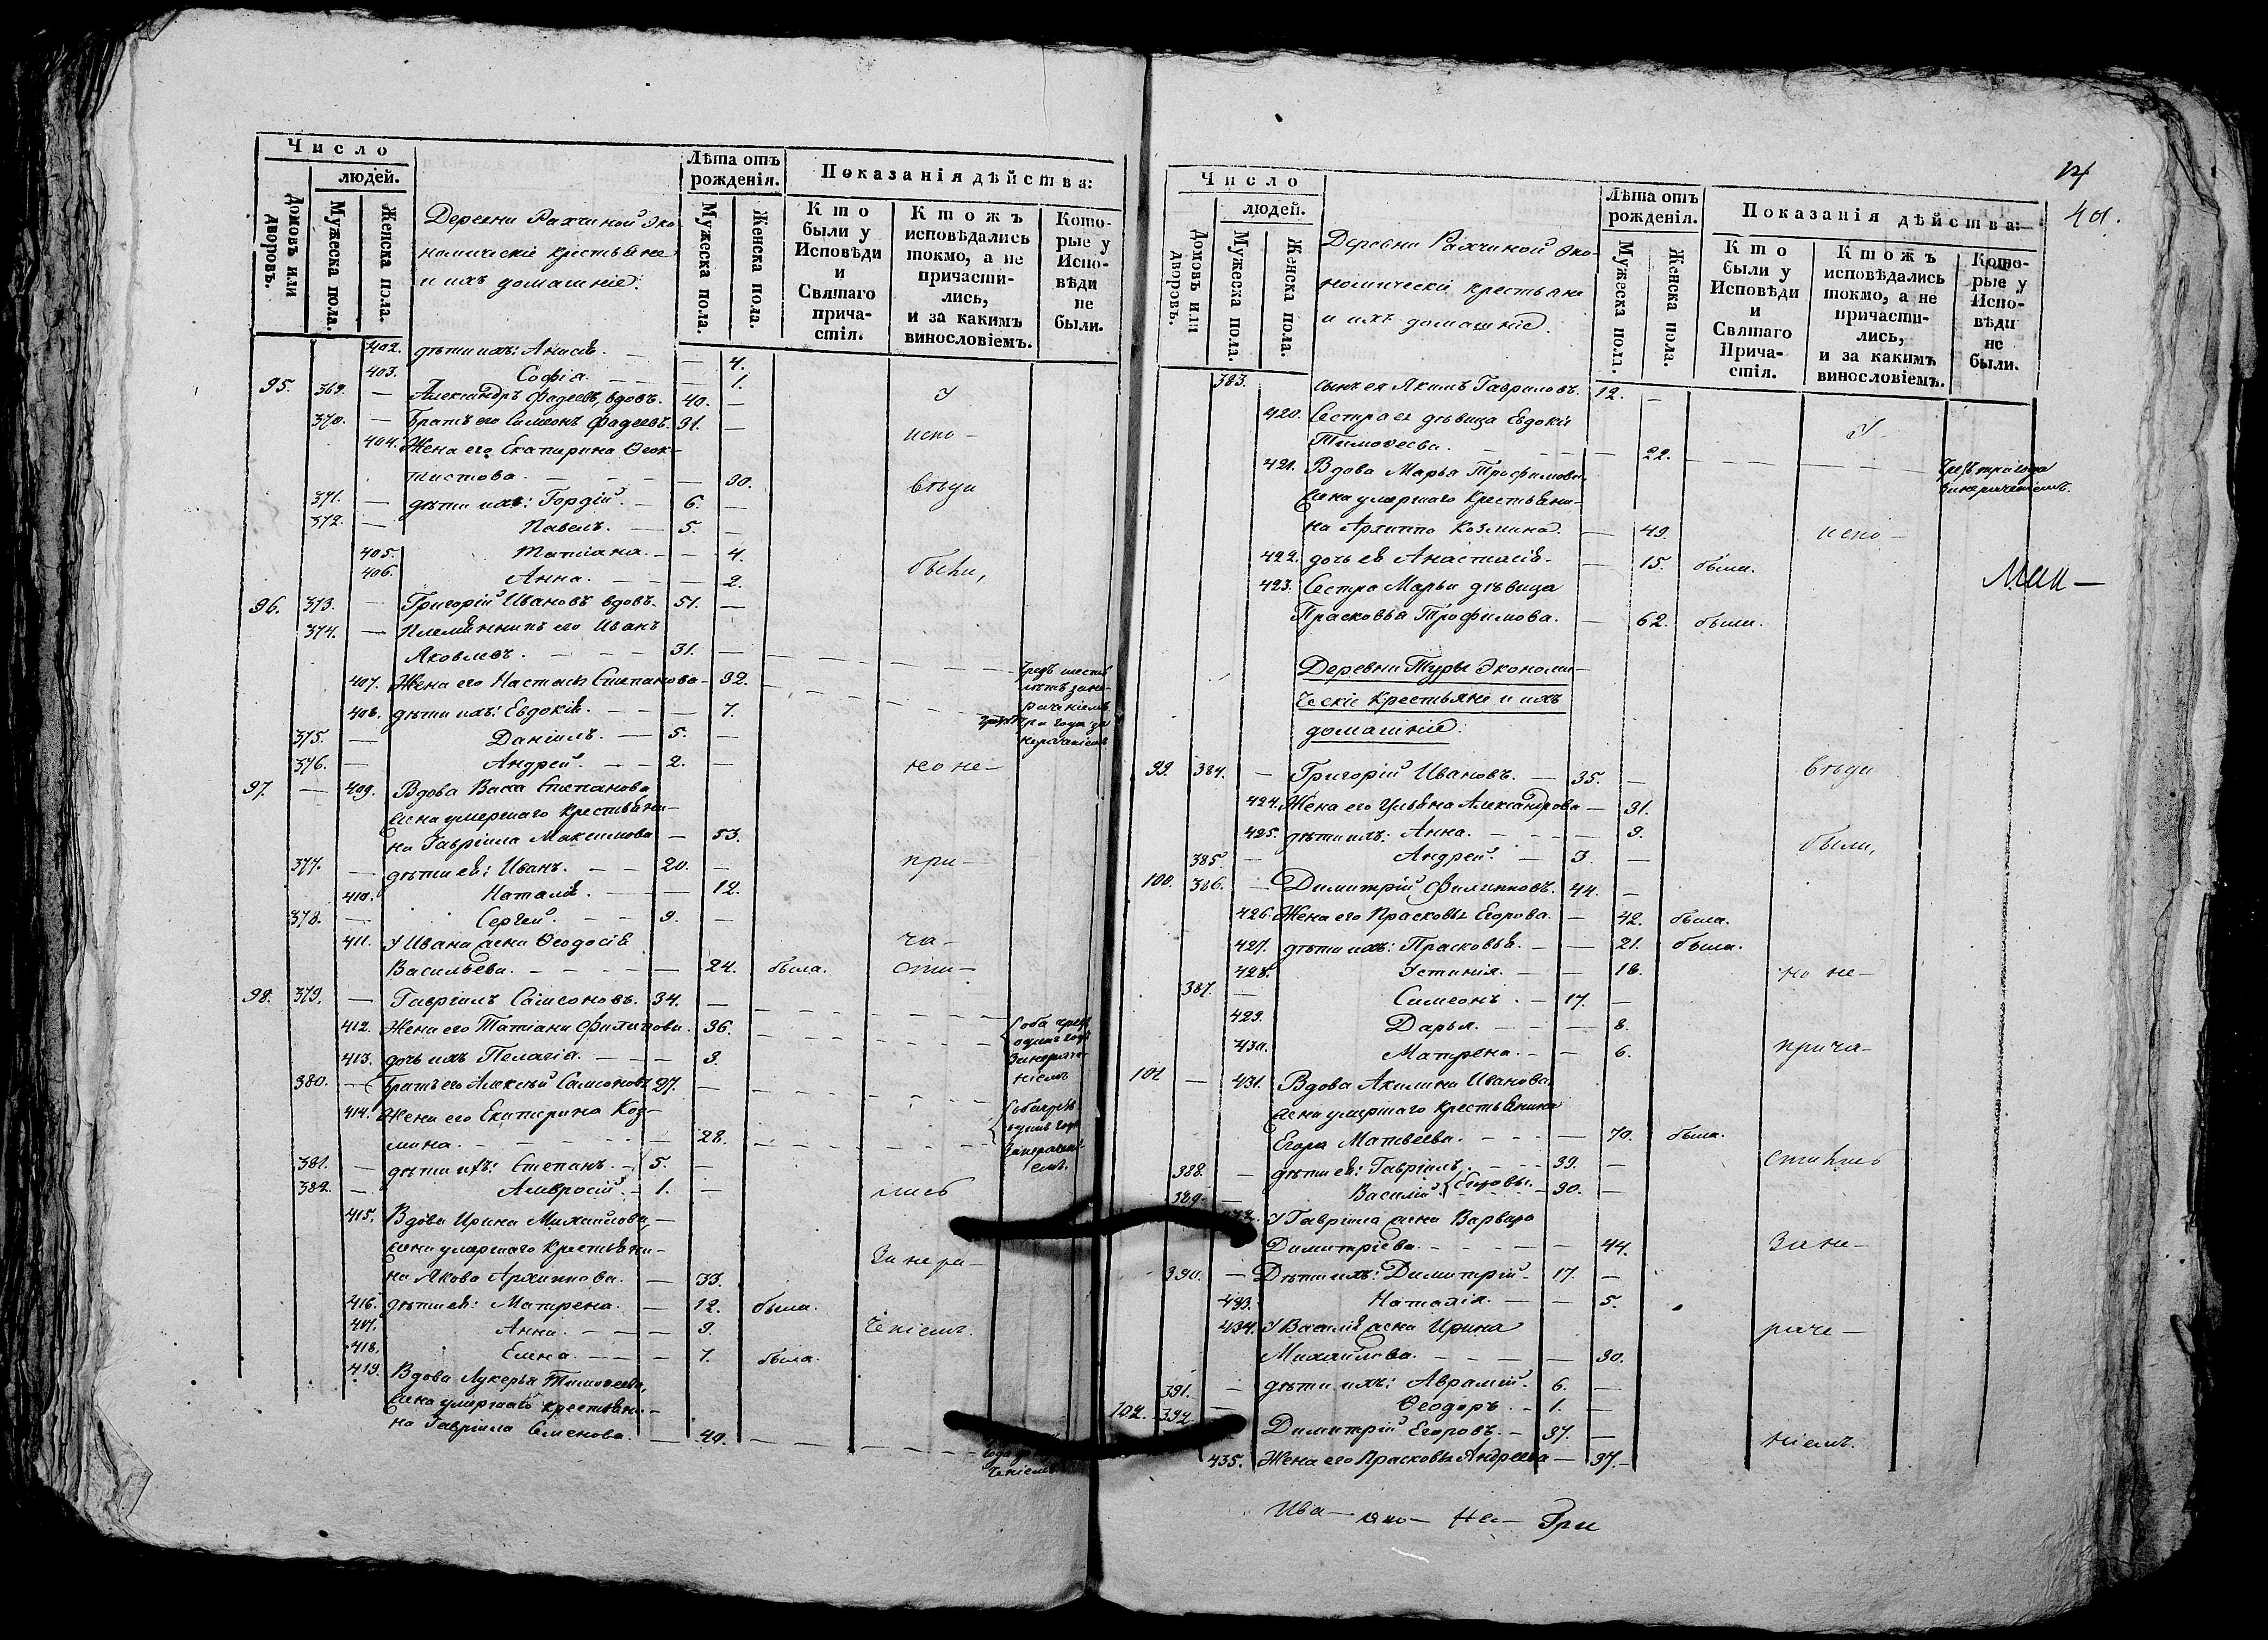 Число
людей.
Домовъ или дворовъ.
Мужеска пола.
Женска пола.
Деревни Рахчиной Эко-
номическіе крестьяне
и ихъ домашніе:
Лѣта отъ
рожденія.
Мужеска пола.
Женска пола.
Показанія дѣйства:
Кто
были у
Исповѣди
и
Святаго
прича-
стія.
Ктожъ
исповѣдались
токмо, а не
причасти-
лись,
и за какимъ
винословіемъ.
Кото-
рые у
Испо-
вѣди
не
были.
402. дѣти ихъ: Анисія. — 4.
403. Софія. — 1.
95. 369. — Александръ Фадеевъ, вдовъ. 40. — У
370. — Братъ его Симеонъ Фадеевъ. 31. —
404. Жена его Екатерина Ѳеок- испо-
тистова. — 30. вѣди
371. — дѣти ихъ: Гордій. 6. —
372. — Павелъ. 5. —
405. Татіана. — 4.
406. Анна. — 2. были,
96. 373. — Григорій Ивановъ вдовъ. 51. —
374. — Племянникъ его Иванъ
Яковлевъ. 31. —
407. Жена его Настасья Степанова — 32. чрезъ шесть
лѣтъ зане-
408. дѣти ихъ: Евдокія. — 7. раченіемъ
375. — Даніилъ. — 5. — три года за
нераченіемъ
376. — Андрей. — 2. — но не-
97. — 409. Вдова Васса Степанова
жена умершаго крестьяни-
на Гавріила Максимова — 53.
377. — дѣти ея: Иванъ. 20. — при-
410. Наталія. — 12.
378. — Сергей. — 9. —
411. У Ивана жена Ѳеодосія ча-
Васильева. — 24. была. сти-
98. 379. — Гавріилъ Самсоновъ. 34. —
412. Жена его Татіана Филипова. 36. оба чрезъ
одинъ годъ
413. дочь ихъ Пелагія. — 3. занерач-
ніемъ
380. — Братъ его Алексѣй Самсоновъ 27. —
414. Жена его Екатерина Коз- оба чрезъ
мина. — 28. одинъ годъ
381. — дѣти ихъ: Степанъ. 5. —
382. — Амвросій. 1. — лись
415. Вдова Ирина Михайлова,
жена умершаго крестьяни- За нера-
на Якова Архиппова. — 33.
416. дѣти ея: Матрена. — 12. была.
417. Анна. — 9. ченіемъ.
418. Елена. — 7. была.
419. Вдова Лукерья Тимоѳеева,
жена умершаго крестьяни-
на Гавріила Семенова. — 40.
ченіемъ
401.
Число
людей.
Домовъ или дворовъ.
Мужеска пола.
Женска пола.
Деревни Рахчиной Эко-
номическіе крестьяне
и ихъ домашніе.
Лѣта отъ
рожденія.
Мужеска пола.
Женска пола.
Показанія дѣйства:
Кто
были у
Исповѣди
и
Святаго
Прича-
стія.
Ктожъ
исповѣдались
токмо, а не
причасти-
лись,
и за какимъ
винословіемъ.
Кото-
рые у
Испо-
вѣди
не
были.
383. сынъ ея Якимъ Гавриловъ. 12. —
420. Сестра ея дѣвица Евдокія У
Тимоѳеева. — 22. чрезъ три года
занераченіемъ.
421. Вдова Марья Трофимова
жена умершаго крестьяни-
на Архиппа Козмина. — 49. испо-
422. дочь ея Анастасія. — 15. была.
423. Сестра Марьи дѣвица Мак-
Прасковья Трофимова. — 62. была.
Деревни Туры Экономи-
ческіе крестьяне и ихъ
домашніе:
99. 384. — Григорій Ивановъ. — 35. — вѣди
424. Жена его Ульяна Александрова — 31.
425. дѣти ихъ: Анна. — 9. были,
385. — Андрей. — 3. —
100. 386. — Димитрій Филипповъ. 44. —
426. Жена его Прасковья Егорова. — 42. была.
427. дѣти ихъ: Прасковья. — 21. была.
428. Устинія. — 18. но не-
387. — Симеонъ. — 17. —
429. Дарья. — 8.
430. Матрена. — 6. прича-
101 — 431. Вдова Акилина Иванова,
жена умершаго крестьянина
Егора Матвѣева. — 70. была.
388. — дѣти ея: Гавріилъ 39. — стились
389. — Василій Егоровы. 30. —
У Гавріила жена Варвара
Димитріева. — 44. Зане-
390. — Дѣти ихъ: Димитрій. 17. —
433. Наталія. — 5.
434. У Василія жена Ирина раче-
Михайлова. — 30.
391. — дѣти ихъ: Аврамій. 6. —
392. — Ѳеодоръ. 1. —
102. — Димитрій Егоровъ. 37. — ніемъ.
435. Жена его Прасковья Андреева — 37.
Ива-
Гри